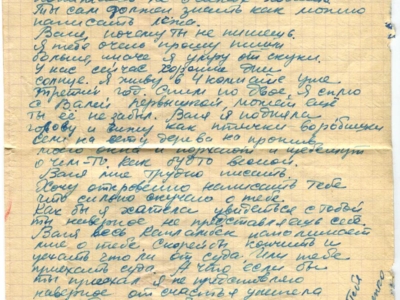 Ты сам должен знать как можно
написать
Валя, почему ты не пишешь.
Я тебя очень прошу пиши
больше, иначе я умру от скуки.
У нас сейчас хорошие дни
солнце. Я живу в 4 комнате уже
третий год. Спим по двое. Я сплю
с Валей может ещё
ты её не забыл. Валя я подняла
голову и вижу как птички воробышки
сели на ветку дерева но
о чем-то, как будто весной.
Валя мне трудно писать.
Хочу откровенно написать тебе
что сильно скучаю о тебе.
Как бы я хотела увидеться с тобой
ты наверное не представляешь себе.
Валя весь напоминает
мне о тебе. Скорей бы кончить и
уехать что ли от сюда. Или тебе
приехать сюда. А что если бы
ты приехал я не
наверное от счастья умерла